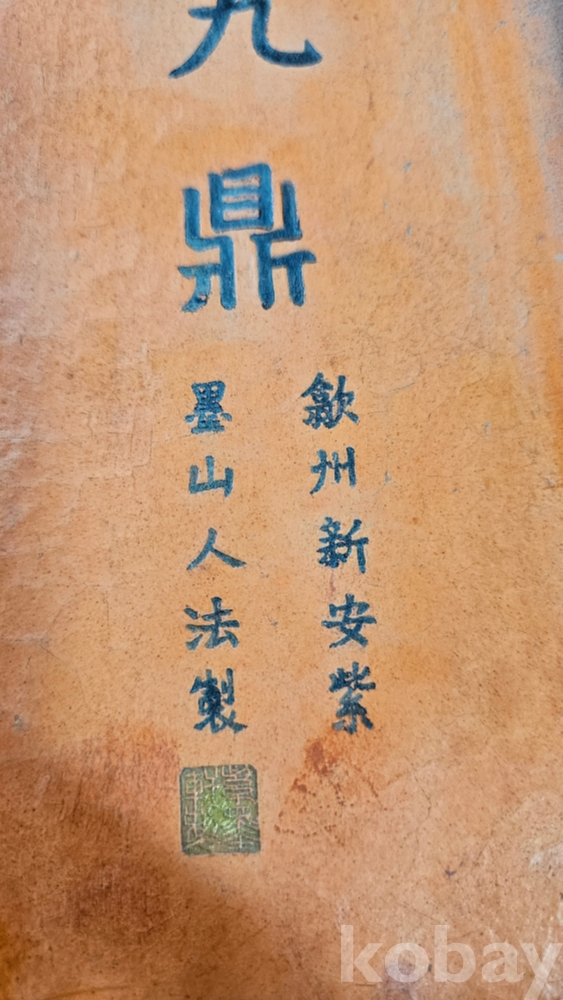 九鼎
歙州新安紫
墨山人法製
kobay